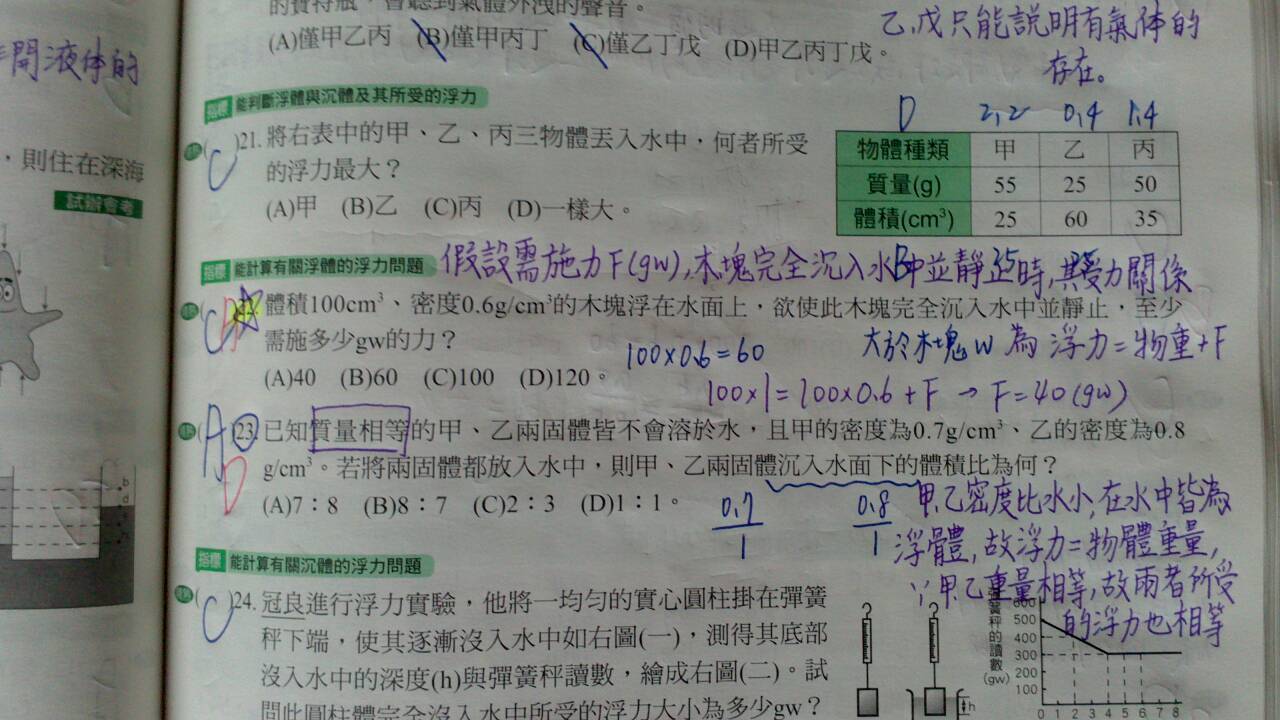 的寶特瓶，會聽到氣體外洩的聲音。
(A)僅甲乙丙 (B)僅甲丙丁 (C)僅乙丁戊 (D)甲乙丙丁戊。
乙,戊只能説明有氣体的
存在。
開液体的
，則住在深海
試辦會考
指標 能判斷浮體與沉體及其所受的浮力
D 2,2 0,4 1.4
( C )21. 將右表中的甲、乙、丙三物體丟入水中，何者所受
的浮力最大？
(A)甲 (B)乙 (C)丙 (D)一樣大。
物體種類 甲 乙 丙
質量(g) 55 25 50
體積(cm³) 25 60 35
指標 能計算有關浮體的浮力問題
假設需施力F(gw),木塊完全沉入水中並靜止時,其受力關係
體積100cm³、密度0.6g/cm³的木塊浮在水面上，欲使此木塊完全沉入水中並靜止，至少
需施多少gw的力？
100×0.6=60
大於木塊W 為 浮力=物重+F
(A)40 (B)60 (C)100 (D)120。
100×1=100×0.6+F → F=40(gw)
A ( )23. 已知質量相等的甲、乙兩固體皆不會溶於水，且甲的密度為0.7g/cm³、乙的密度為0.8
D
g/cm³。若將兩固體都放入水中，則甲、乙兩固體沉入水面下的體積比為何？
(A)7：8 (B)8：7 (C)2：3 (D)1：1。
0.7
1
0.8
1
甲,乙密度比水小,在水中皆為
浮體,故浮力=物體重量,
∵甲乙重量相等,故兩者所受
的浮力也相等
指標 能計算有關沉體的浮力問題
( C )24. 冠良進行浮力實驗，他將一均勻的實心圓柱掛在彈簧
秤下端，使其逐漸沒入水中如右圖(一)，測得其底部
沒入水中的深度(h)與彈簧秤讀數，繪成右圖(二)。試
問此圓柱體完全沒入水中所受的浮力大小為多少gw？
彈簧秤的讀數
(gw)
600
500
400
300
200
100
0 1 2 3 4 5 6 7 8
h